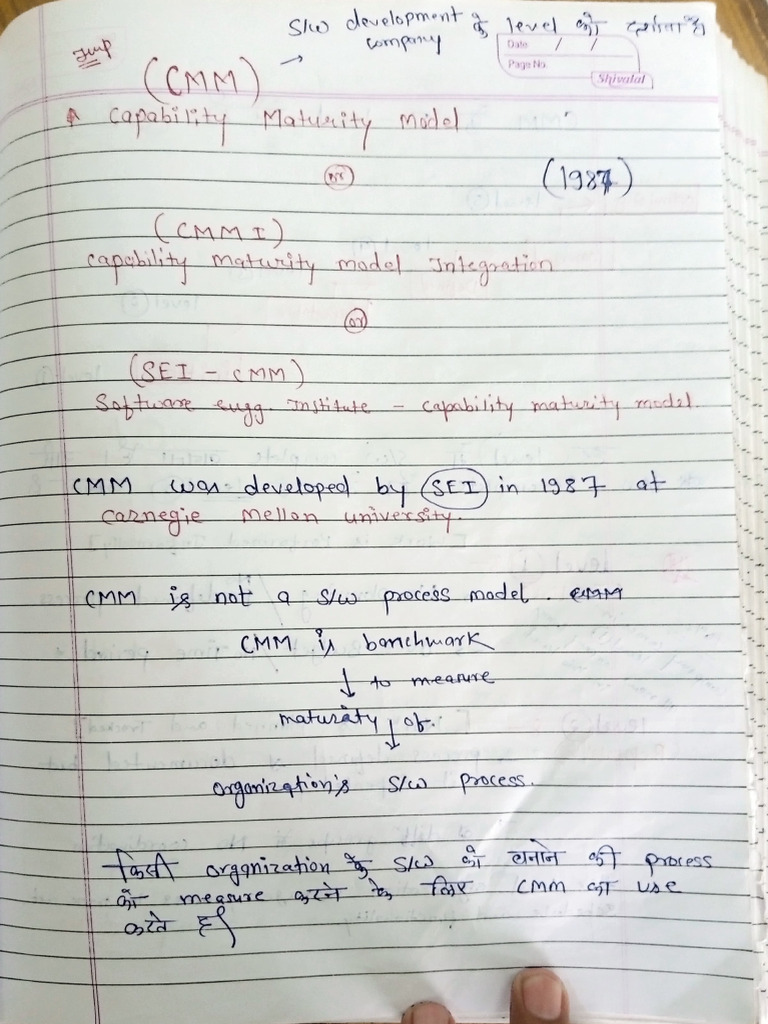 S/W development के level को दर्शाता है
company
→
Imp
Date / /
Page No.
Shivalal
(CMM)
Capability Maturity Model
or
(1987)
(CMMI)
Capability maturity model Integration
or
(SEI - CMM)
Software Engg. Institute - Capability maturity model.
CMM was developed by SEI in 1987 at
Carnegie Mellon university.
CMM is not a S/W process model.
CMM is banchmark
↓ to measure
maturity ↓ of
organization's S/W process.
किसी organization के S/W को बनाने की process
को measure करने के लिए CMM का use
करते हैं